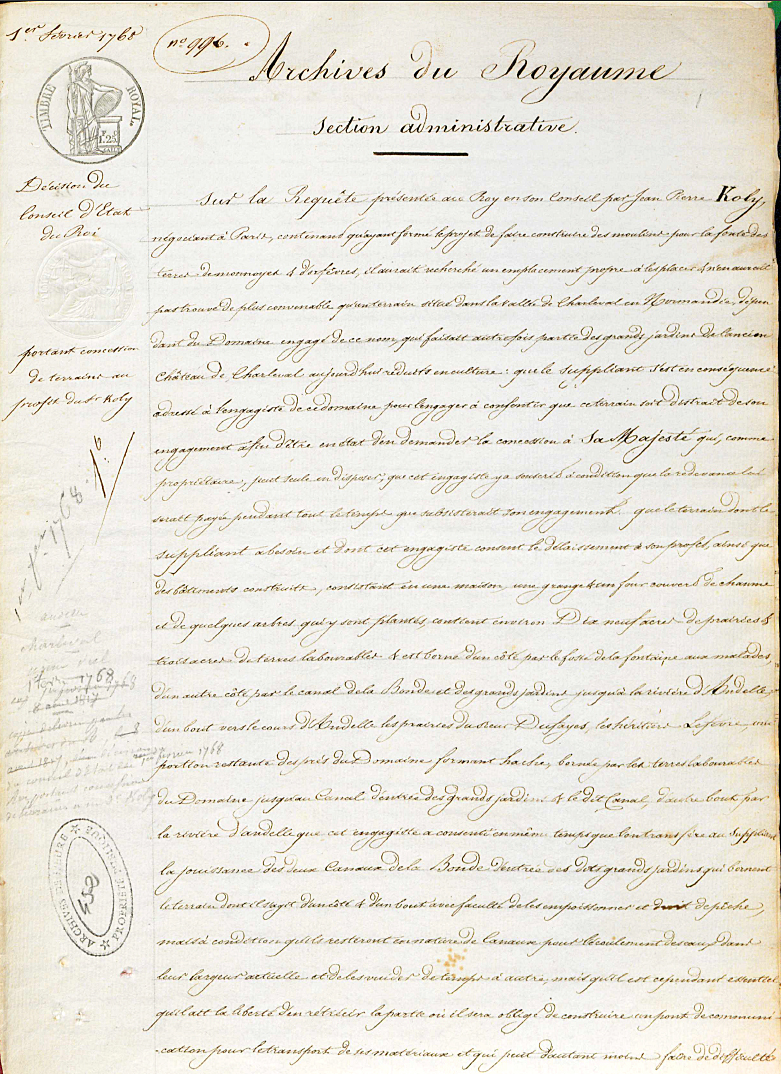 1er février 1768
n° 996.
Archives du Royaume
Section administrative.
TIMBRE ROYAL
1.25
Décision du
Conseil d'Etat
du Roi
portant concession
de terrains au
profit du Sr Koly
Sur la Requête présentée au Roy en son Conseil par Jean Pierre Koly,
négociant à Paris, contenant qu'ayant formé le projet de faire construire des moulins pour la fonte des
terres de monnoyes & d'orfèvres, il aurait recherché un emplacement propre à les placer & n'en aurait
pas trouvé de plus convenable qu'un terrain situé dans la vallée de Charleval en Normandie, dépen
dant du Domaine engagé de ce nom, qui faisait autrefois partie des grands jardins de l'ancien
Château de Charleval aujourd'hui réduits en culture : que le Suppliant s'est en conséquence
adressé à l'engagiste de ce domaine pour l'engager à consentir que ce terrain soit distrait de son
engagement afin d'être en état d'en demander la concession à Sa Majesté qui, comme
propriétaire, peut seule en disposer, que cet engagiste y a souscrit à condition que la redevance lui
serait payée pendant tout le temps que subsisterait son engagement. que le terrain dont le
suppliant a besoin et dont cet engagiste consent le délaissement à son profit, ainsi que
des bâtiments construits, consistant en une maison, une grange & un four couvert de chaume
et de quelques arbres qui y sont plantés, contient environ Dix neuf acres de prairies &
trois acres de terres labourables & est borné d'un côté par le fossé de la fontaine aux malades
d'un autre côté par le canal de la Bonde et des grands jardins jusqu'à la rivière d'Andelle
d'un bout vers le cours d'Andelle les prairies du Sieur Dufayes, les héritiers Lefevre, une
portion restante des prés du Domaine formant hache, bornée par les terres labourables
du Domaine jusqu'au Canal d'entrée des grands jardins & le dit Canal, d'autre bout par
la rivière d'andelle que cet engagiste a consenti en même temps que l'on transfère au Suppliant
la jouissance des deux Canaux de la Bonde d'entrée des dits grands jardins qui bornent
le terrain dont il s'agit d'un côté & d'un bout avec faculté de les empoissonner et droit de pêche,
mais à condition qu'ils resteront en nature de Canaux pour l'écoulement des eaux dans
leur largeur actuelle et de les vuider de temps à autre, mais qu'il est cependant essentiel
qu'il ait la liberté d'en rétrécir la partie où il sera obligé de construire un pont de communi
-cation pour le transport de ses matériaux et qui peut d'autant moins faire de difficulté
1er fer 1768
Charleval
1 fév. 1768
ARCHIVES DE L'EURE
458